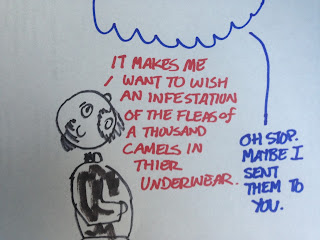 IT MAKES ME
WANT TO WISH
AN INFESTATION
OF THE FLEAS of
A THOUSAND
CAMELS IN
THIER
UNDERWEAR.
OH STOP.
MAYBE I
SENT
THEM TO
YOU.